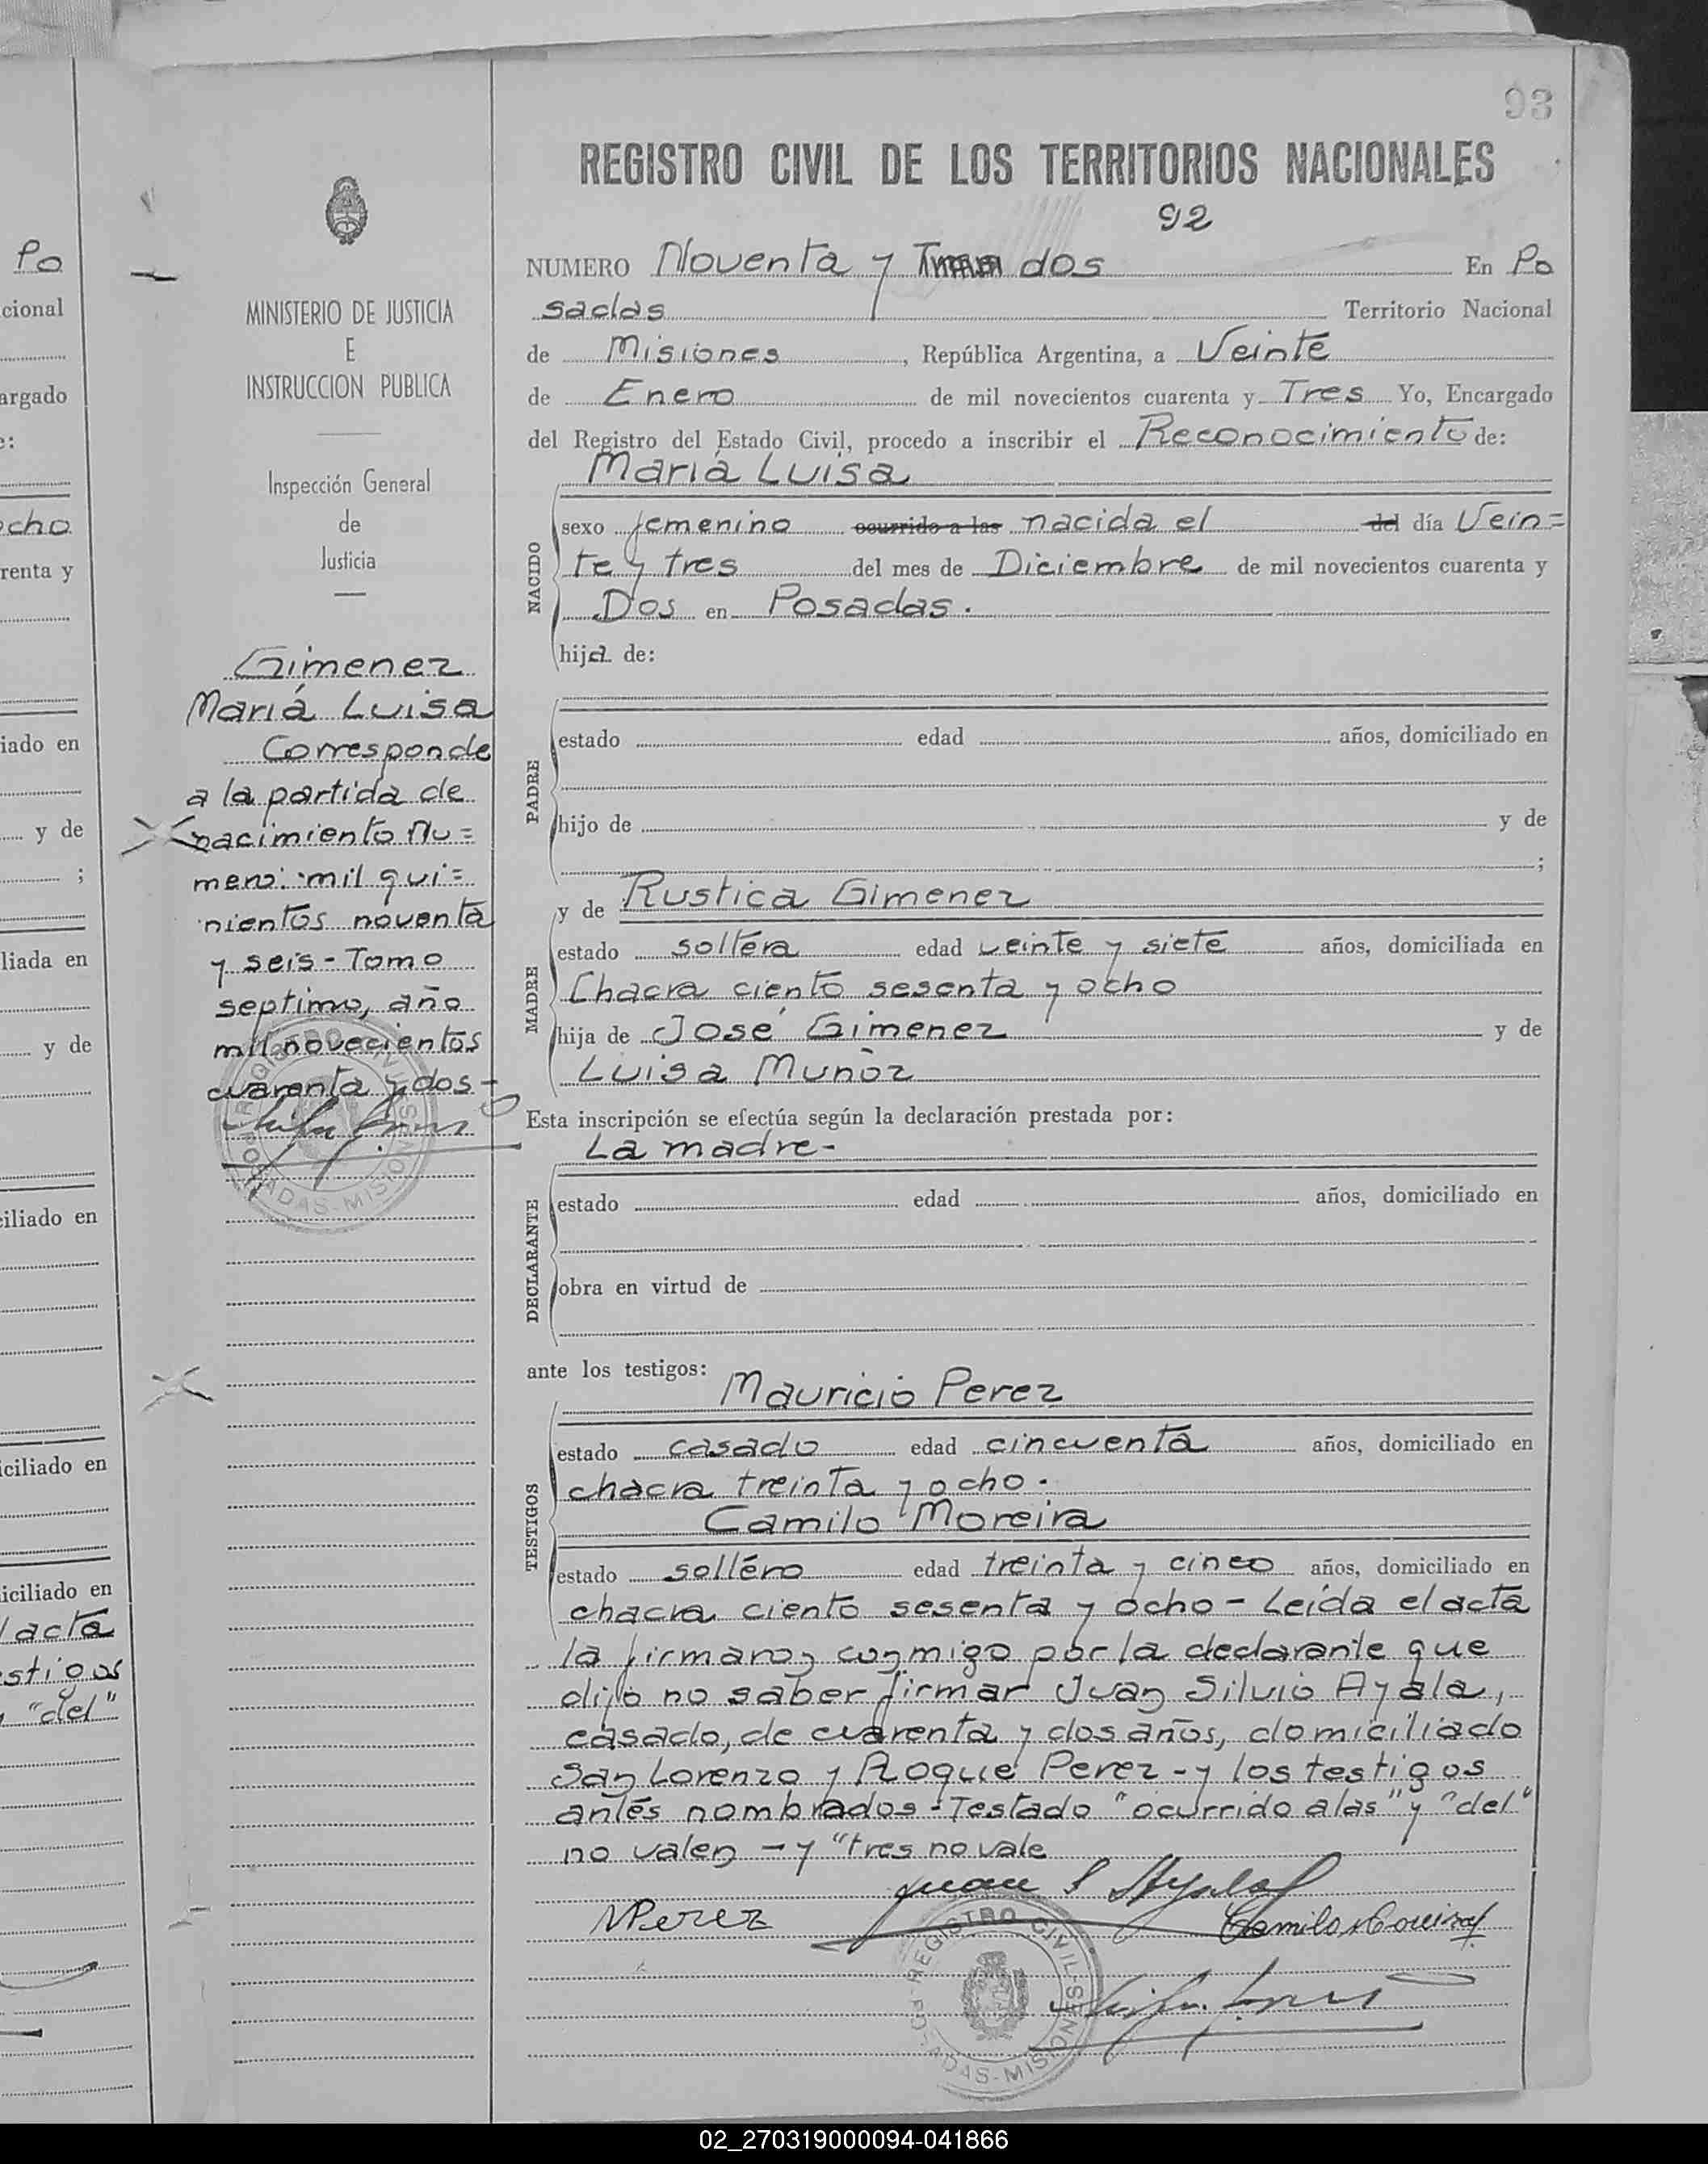 93
REGISTRO CIVIL DE LOS TERRITORIOS NACIONALES
92
NUMERO Noventa y dos En Po
sadas Territorio Nacional
de Misiones, República Argentina, a Veinte
de Enero de mil novecientos cuarenta y Tres Yo, Encargado
del Registro del Estado Civil, procedo a inscribir el Reconocimiento de:
Mariá Luisa
NACIDO
sexo femenino ocurrido a las nacida el del día Vein=
te y tres del mes de Diciembre de mil novecientos cuarenta y
Dos en Posadas.
hija de:
PADRE
estado edad años, domiciliado en
hijo de y de
;
MADRE
y de Rustica Gimenez
estado soltera edad veinte y siete años, domiciliada en
Chacra ciento sesenta y ocho
hija de José Gimenez y de
Luisa Muñoz
Esta inscripción se efectúa según la declaración prestada por:
La madre-
DECLARANTE
estado edad años, domiciliado en
obra en virtud de
ante los testigos:
Mauricio Perez
TESTIGOS
estado casado edad cincuenta años, domiciliado en
chacra treinta y ocho.
Camilo Moreira
estado soltéro edad treinta y cinco años, domiciliado en
chacra ciento sesenta y ocho - Leida el acta
la firmaron conmigo por la declarante que
dijo no saber firmar Juan Silvio Ayala,
casado, de cuarenta y dos años, domiciliado
San Lorenzo y Roque Perez - y los testigos
antés nombrados - Testado "ocurrido a las" y "del"
no valen - y "tres no vale
Juan S Ayala
MPerez
Camilo Moreira
REGISTRO CIVIL
POSADAS-MISIONES
MINISTERIO DE JUSTICIA
E
INSTRUCCION PUBLICA
Inspección General
de
Justicia
Gimenez
Mariá Luisa
Corresponde
a la partida de
nacimiento Nu=
mero: mil qui=
nientos noventa
y seis - Tomo
septimo, año
mil novecientos
cuarenta y dos -
REGISTRO CIVIL
POSADAS-MISIONES
Po
cional
argado
e:
ocho
renta y
iado en
y de
;
liada en
y de
ciliado en
iciliado en
iciliado en
l acta
estigos
y "del"
02_270319000094-041866